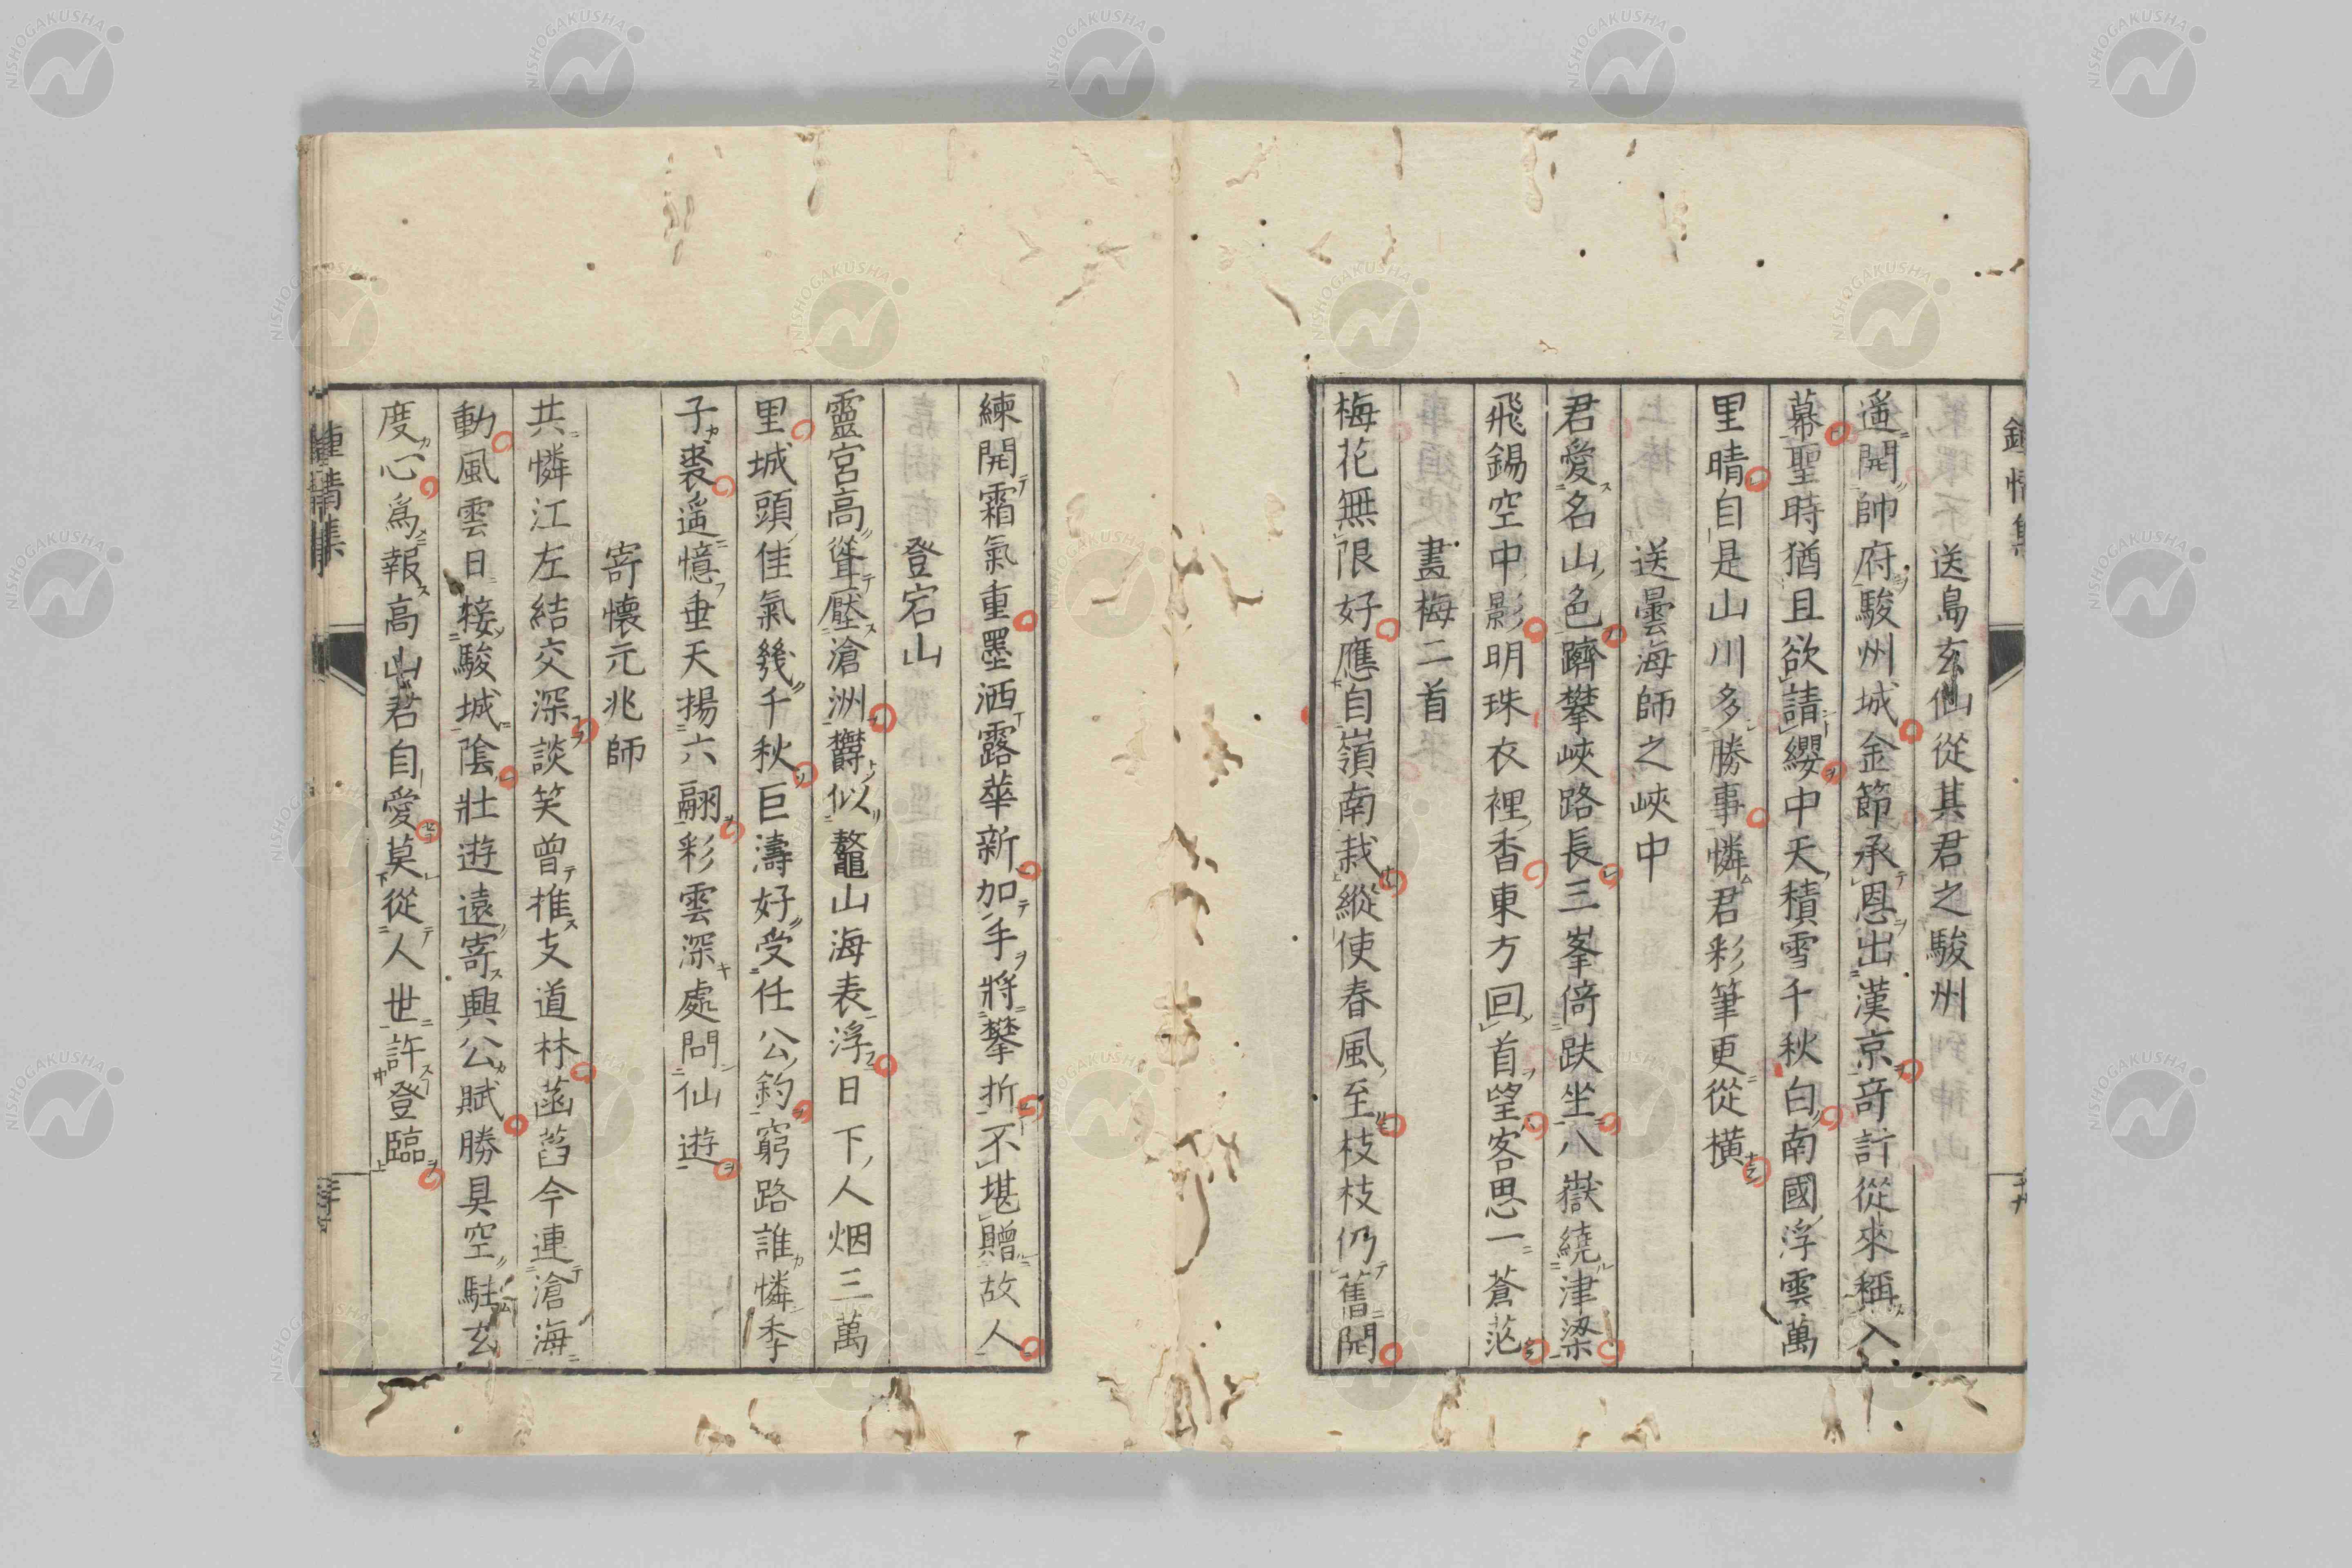 送島玄仙從其君之駿州
遥開帥府駿州城金節承恩出漢京奇計從來稱入
幕聖時猶且欲請纓中天積雪千秋白南國浮雲萬
里晴自是山川多勝事憐君彩筆更從橫
送曇海師之峽中
君愛名山色躋攀峽路長三峯倚趺坐八嶽繞津梁
飛錫空中影明珠衣裡香東方回首望客思一蒼茫
畫梅二首
梅花無限好應自嶺南栽縱使春風至枝枝仍舊開
練開霜氣重墨洒露華新加手將攀折不堪贈故人
登宕山
靈宮高聳壓滄洲欝似鼇山海表浮日下人烟三萬
里城頭佳氣幾千秋巨濤好受任公釣窮路誰憐季
子裘遥憶垂天揚六翮彩雲深處問仙遊
寄懷元兆師
共憐江左結交深談笑曾推支道林菡萏今連滄海
動風雲日接駿城陰壯遊遠寄興公賦勝具空駐玄
度心爲報高山君自愛莫從人世許登臨
鍾情集
NISHOGAKUSHA